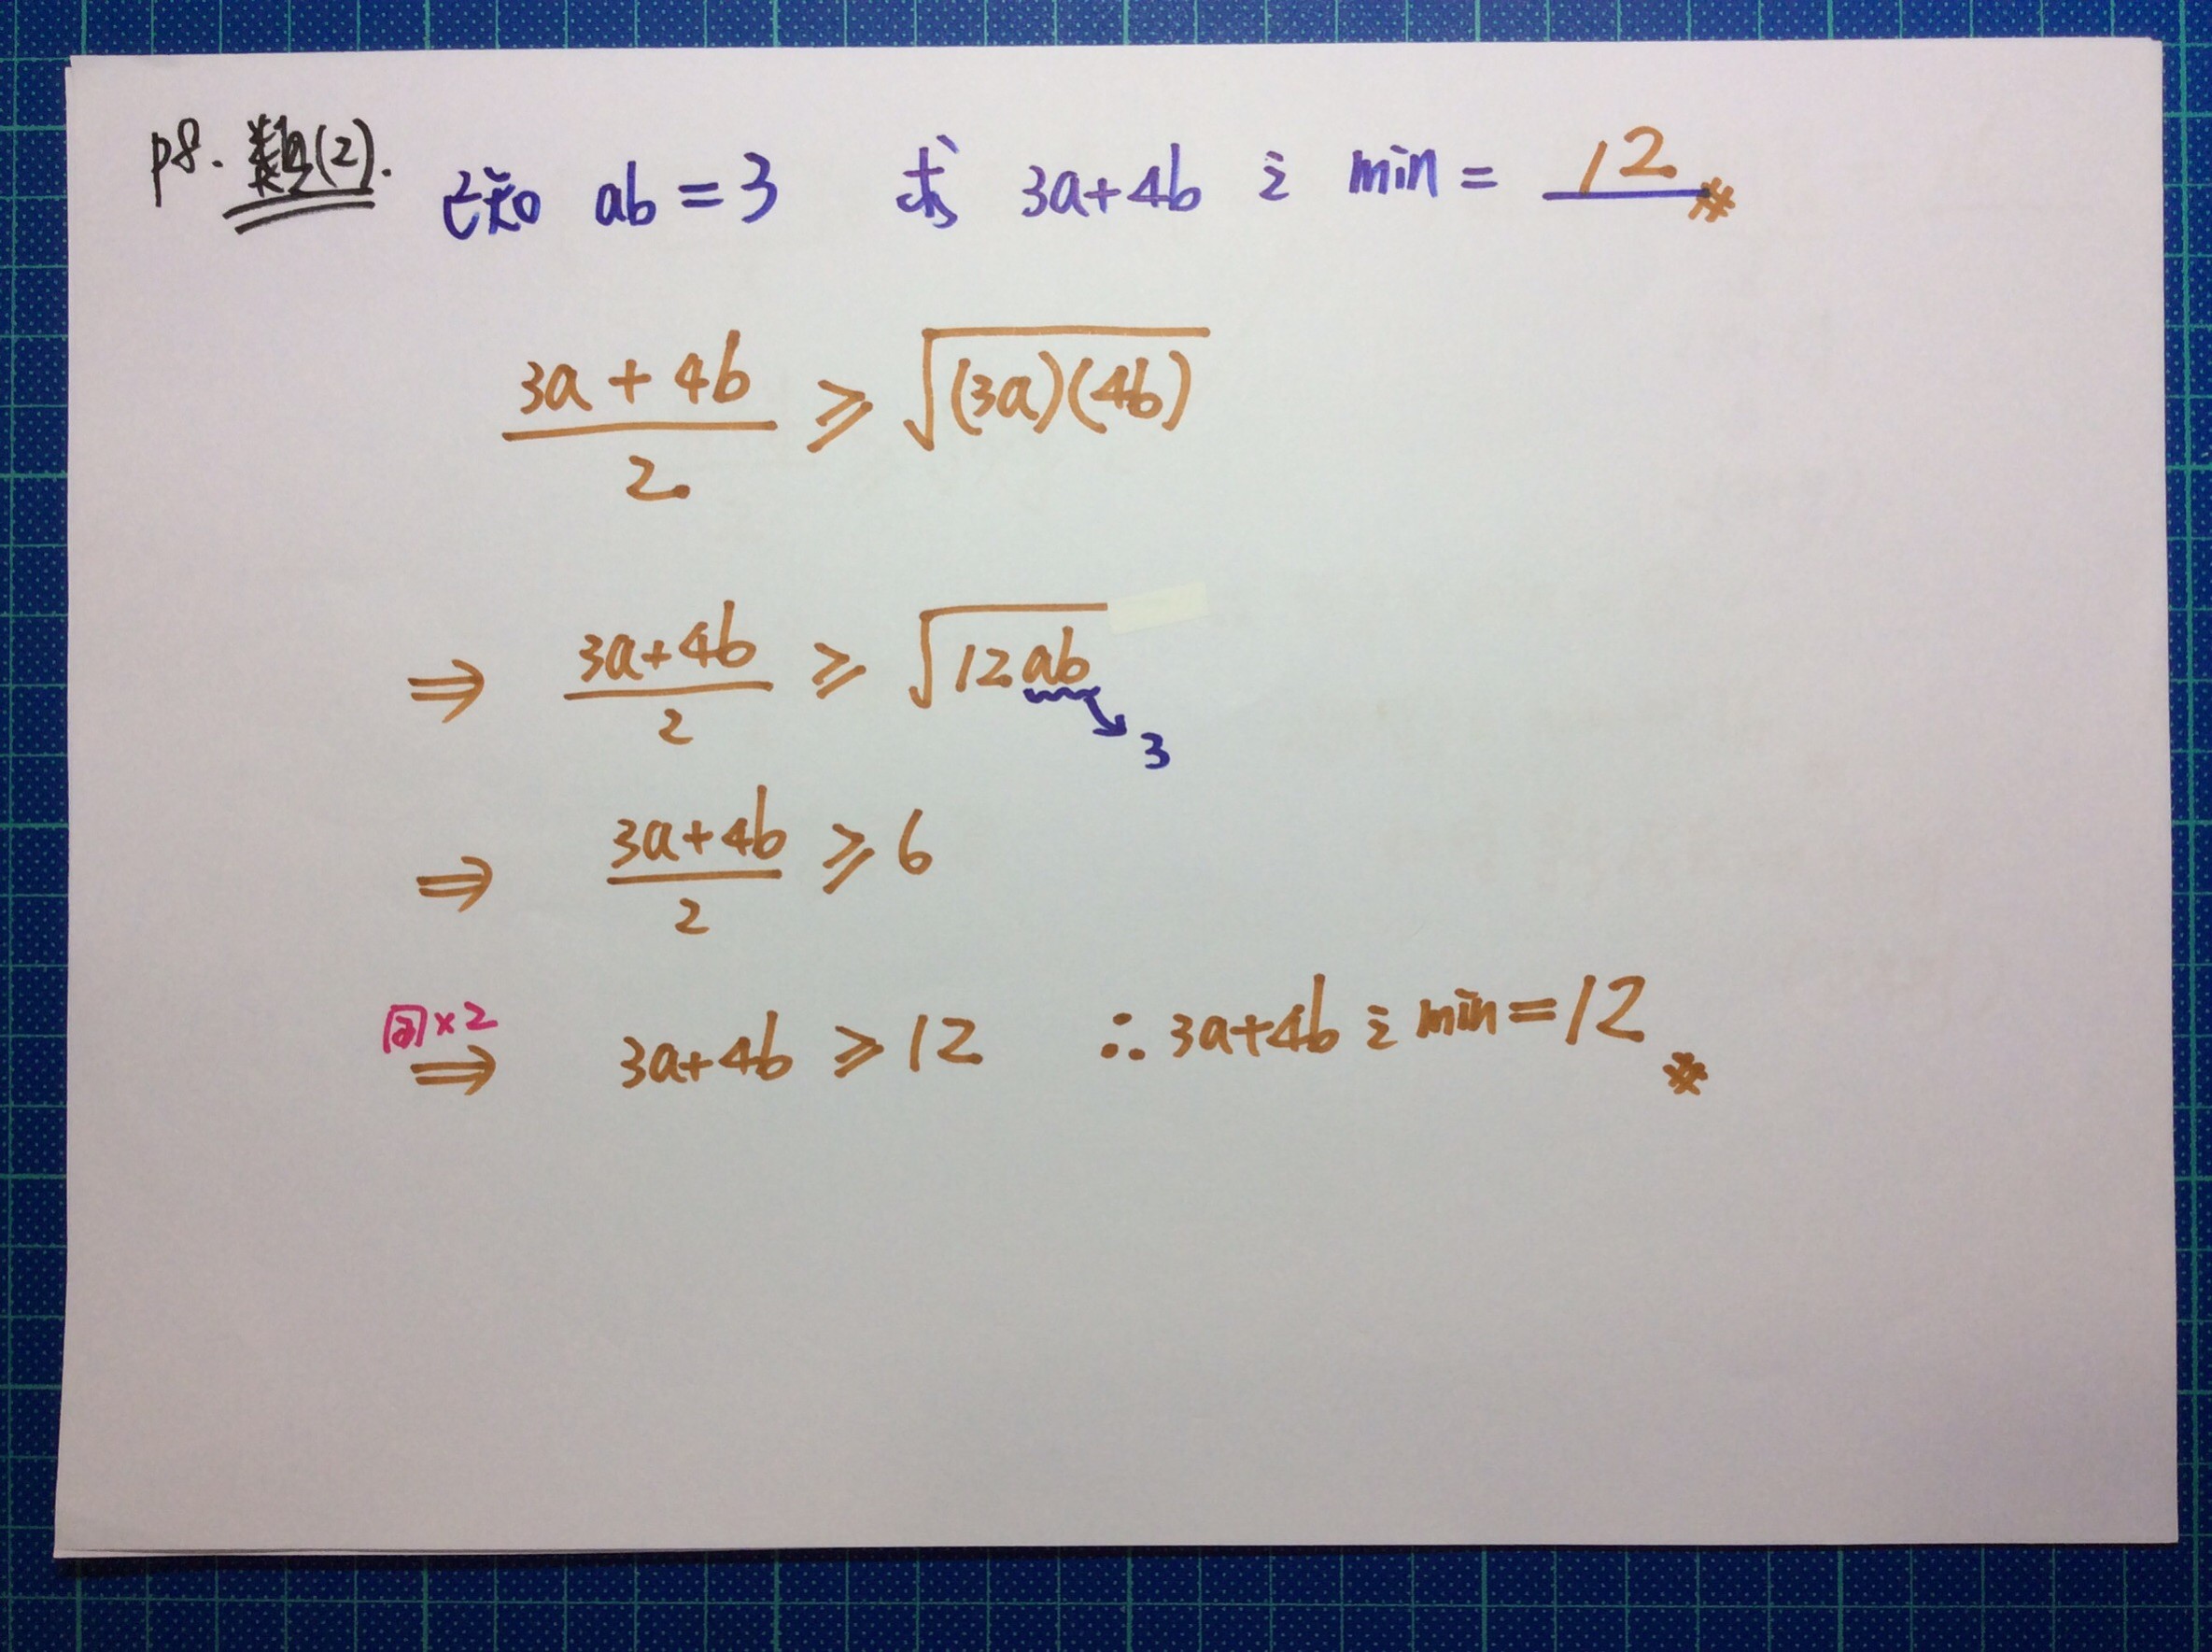 p8. 類(2). 已知 ab = 3 求 3a+4b 之 min = 12 #
(3a + 4b)/2 ≥ √((3a)(4b))
⇒ (3a+4b)/2 ≥ √(12ab)
3
⇒ (3a+4b)/2 ≥ 6
同×2
⇒ 3a+4b ≥ 12 ∴ 3a+4b 之 min = 12 #